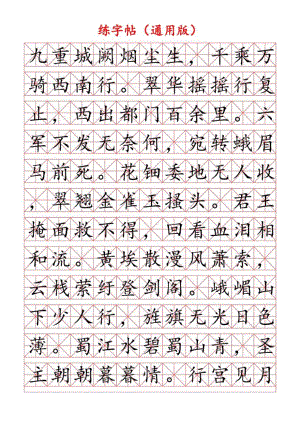 练字帖（通用版）
九重城阙烟尘生，千乘万
骑西南行。翠华摇摇行复
止，西出都门百余里。六
军不发无奈何，宛转蛾眉
马前死。花钿委地无人收
，翠翘金雀玉搔头。君王
掩面救不得，回看血泪相
和流。黄埃散漫风萧索，
云栈萦纡登剑阁。峨嵋山
下少人行，旌旗无光日色
薄。蜀江水碧蜀山青，圣
主朝朝暮暮情。行宫见月